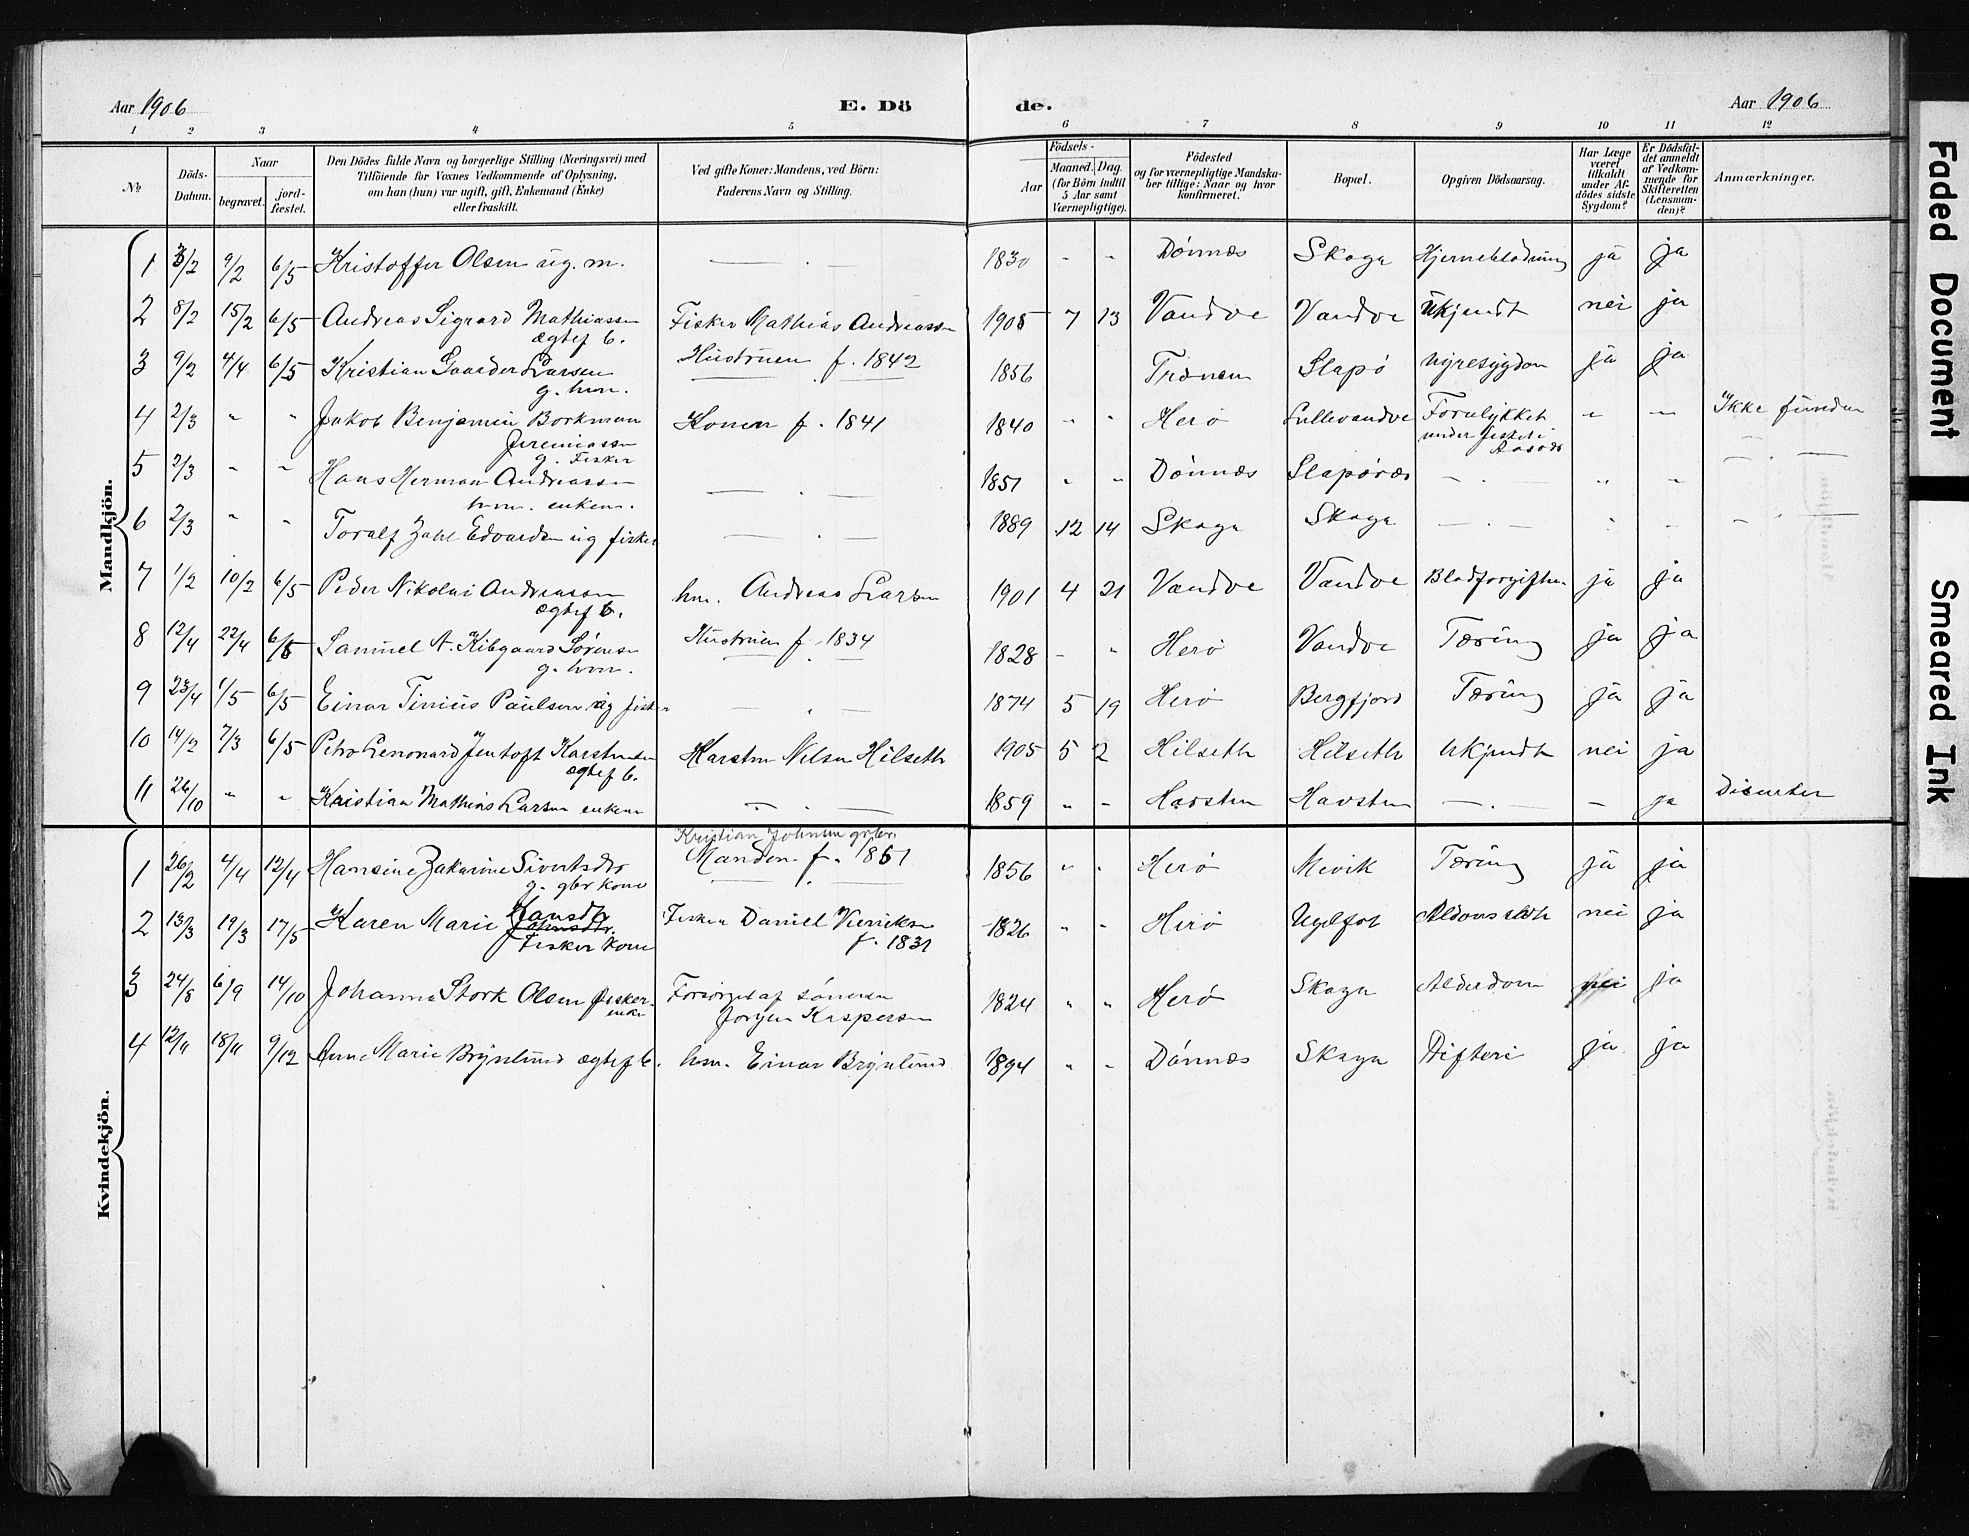 Aar 1906 E. Dö de. Aar 1906
1 2 3 4 5 6 7 8 9 10 11 12
No
Döds-Datum.
Naar
begravet.
jord-fæstet.
Den Dödes fulde Navn og borgerlige Stilling (Næringsvei) med
Tilföiende for Voxnes Vedkommende af Oplysning,
om han (hun) var ugift, gift, Enkemand (Enke)
eller fraskilt.
Ved gifte Koner: Mandens, ved Börn:
Faderens Navn og Stilling.
Födsels-
Aar
Maaned. Dag.
(for Börn indtil
5 Aar samt
Værnepligtige).
Födested
og for værnepligtige Mandska-
ber tillige: Naar og hvor
konfirmeret.
Bopæl.
Opgiven Dödsaarsag.
Har Læge
været
tilkaldt
under Af-
dödes sidste
Sygdom?
Er Dödsfal-
det anmeldt
af Vedkom-
mende for
Skifteretten
(Lensman-
den)?
Anmærkninger.
Mandkjön.
1 3/2 9/2 6/5 Kristoffer Olsen ug. m. — . — 1830 " " Dönnæs Skaga Hjerneblødning ja ja
2 8/2 15/2 6/5 Andreas Sigvard Mathiassen Fisker Mathias Andreassen 1905 7 13 Vandve Vandve Ukjendt nei ja
ægtef b.
3 9/2 4/4 6/5 Kristian Larsen Hustruen f. 1842 1856 Trænen Slapö nyresygdom ja ja
g. hm.
4 2/3 " " Jakob Benjamin Borkman Konen f. 1841 1840 " " Herö Lillevandve Forulykket " — Ikke funden
Jeremiassen under fiskeri
g. Fisker
5 2/3 " " Hans Herman Andreassen — . — 1851 " " Dönnæs Slapöræs — . — " " — . —
hm. enkem.
6 2/3 " " Toralf Zahl Edvardsen ug fisker — . — 1889 12 14 Skaga Skaga — . — " — — . —
7 1/2 10/2 6/5 Peder Nikolai Andreassen hm. Andreas Larsen 1901 4 21 Vandve Vandve Blodforgiften. ja ja
ægtef b.
8 12/4 22/4 6/5 Samuel A. Kibgaard Sörensen Hustruen f. 1834 1828 — " Herö Vandve Tæring ja ja
g. hm.
9 23/4 1/5 6/5 Einar Tinius Paulsen ug fisker — . — 1874 5 19 Herö Bergfjord Tæring ja ja
10 14/2 7/3 6/5 Petro Lenonard Jentoft Karstensen Karsten Nilsen Hilseth 1905 5 2 Hilseth Hilseth Ukjendt nei ja
ægtef b.
11 26/10 " " Kristian Mathias Larsen enkem — . — 1859 " " Havsten Havsten — . — — ja
Kvindekjön.
Kristian Johnsen grbr.
1 26/2 4/4 12/4 Hansine Zakarine Sivertsdr Manden f. 1861 1856 " " Herö Mevik Tæring ja ja
g. gbr kone
2 13/3 19/3 17/5 Karen Marie Hansdtr Fisker Daniel 1826 " " Herö nei ja
Fisker kone f. 1831
3 24/8 6/9 14/10 Johanna Stork Olsen fisker- Forsörget af sönnen 1824 " " Herö Skaga Alderdom nei ja
enke Jörgen Kaspersen
4 12/11 18/11 9/12 Anna Marie Brynlund ægtef b. hm. Einar Brynlund 1894 " " Dönnæs Skaga Difteri ja ja
Faded Document
Smeared Ink